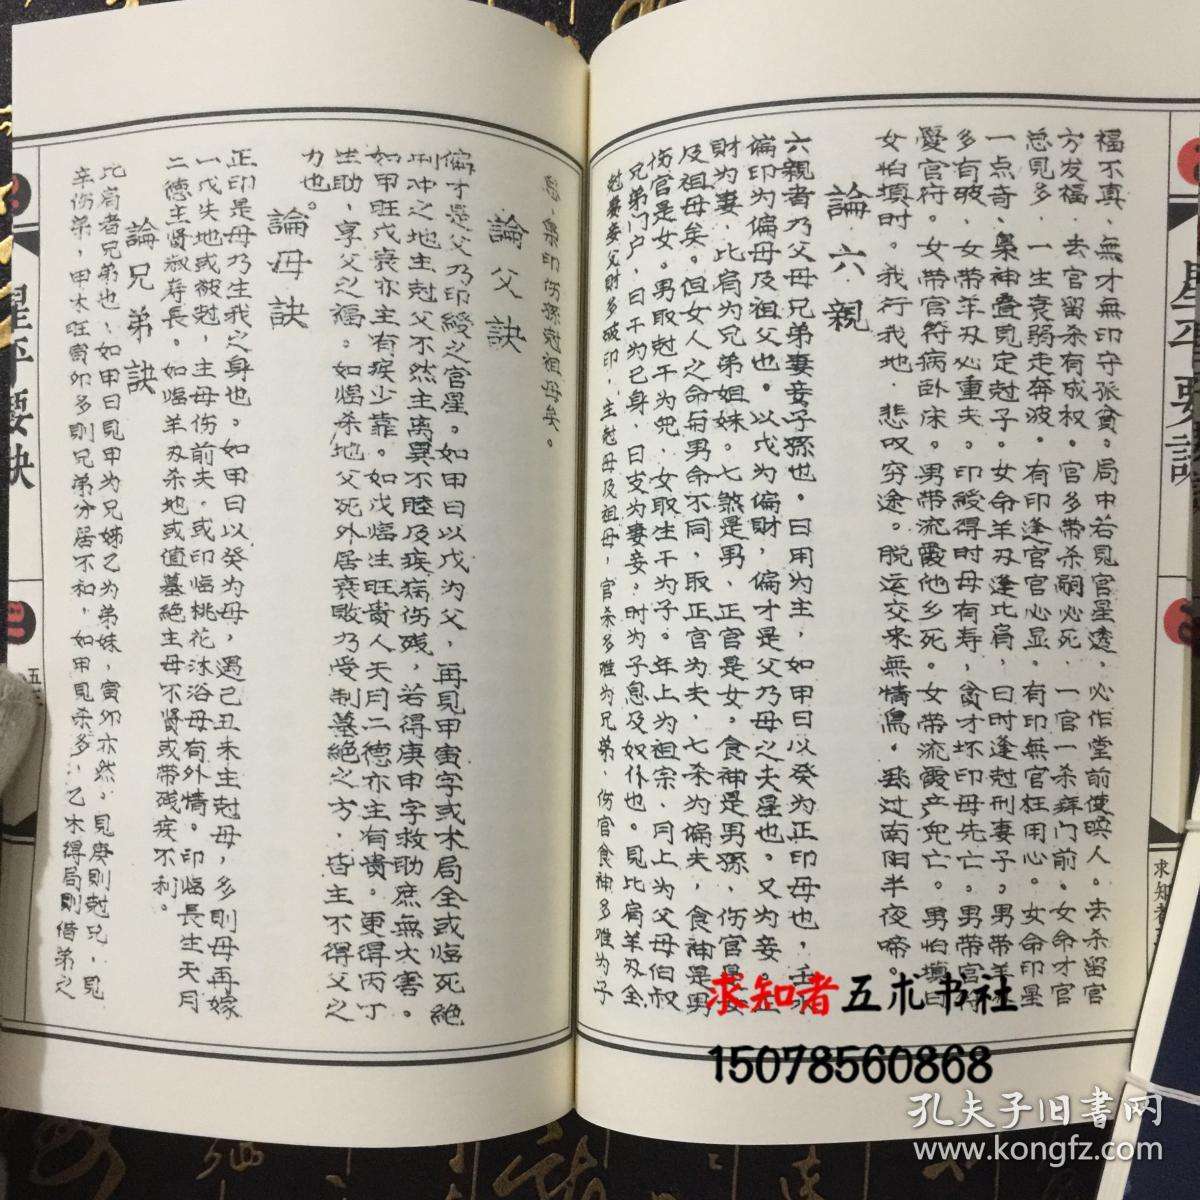 福不真，無才無印守张贫。局中若見官星透，必作堂前使唤人。去杀留官
方发福，去官留杀有成权。官多带杀嗣必死，一官一杀拜门前。女命才官
总見多，一生衰弱走奔波。有印逢官官必显，有印無官枉用心。女命印星
一点奇，梟神叠見定尅子。女命羊刃逢比肩，日时逢尅刑妻子。男带羊
多有破，女带羊刃必重夫。印綬得时母有寿，貪才坏印母先亡。男带官符
憂官符。女带官符病卧床。男带流霞他乡死。女带流霞产児亡。男怕填日
女怕填时。我行我地，悲叹穷途。脱运交来無情馬。過南阳半夜啼。
論六親
六親者乃父母兄弟妻妾子孫也。日用为主，如甲日以癸为正印母也，壬水
偏印为偏母及祖父也。以戊为偏財，偏才是父乃母之夫星也。又为妾。
財为妻，比肩为兄弟姐妹。七煞是男，正官是女。食神是男孫，伤官是
及祖母矣。但女人之命与男命不同，取正官为夫，七杀为偏夫，食神是男
伤官是女。男取尅干为児，女取生干为子。年上为祖宗，月上为父母伯叔
兄弟门户，日干为己身，日支为妻妾，时为子息及奴仆也。見比肩羊刃全
尅妻妾父財多破印，主尅母及祖母，官杀多难为兄弟，伤官食神多难为子
息，梟印伤孫尅祖母矣。
論父訣
偏才是父乃印綬之官星。如甲日以戊为父，再見甲寅字或木局全或臨死絶
刑冲之地主尅父不然主离異不睦及疾病伤残，若得庚申字救助庶無大害。
如甲旺戊衰亦主有疾少靠。如戊臨生旺貴人天月二德亦主有貴。更得丙丁
生助，享父之福。如臨杀地父死外居衰敗乃受制墓絶之方，皆主不得父之
力也。
論母訣
正印是母乃生我之身也。如甲日以癸为母，遇己丑未主尅母，多則母再嫁
一戊失地或被尅，主母伤前夫，或印臨桃花沐浴母有外情。印臨長生天月
二德主賢淑寿長。如臨羊刃杀地或值墓絶主母不賢或带残疾不利。
論兄弟訣
比肩者兄弟也，如甲日見甲为兄姊乙为弟妹，寅卯亦然。見庚則尅兄，見
辛伤弟，甲木旺寅卯多則兄弟分居不和，如甲見杀多，乙木得局則借弟之
星平要訣
星平要訣
求知者五术书社
15078560868
孔夫子旧書网
www.kongfz.com